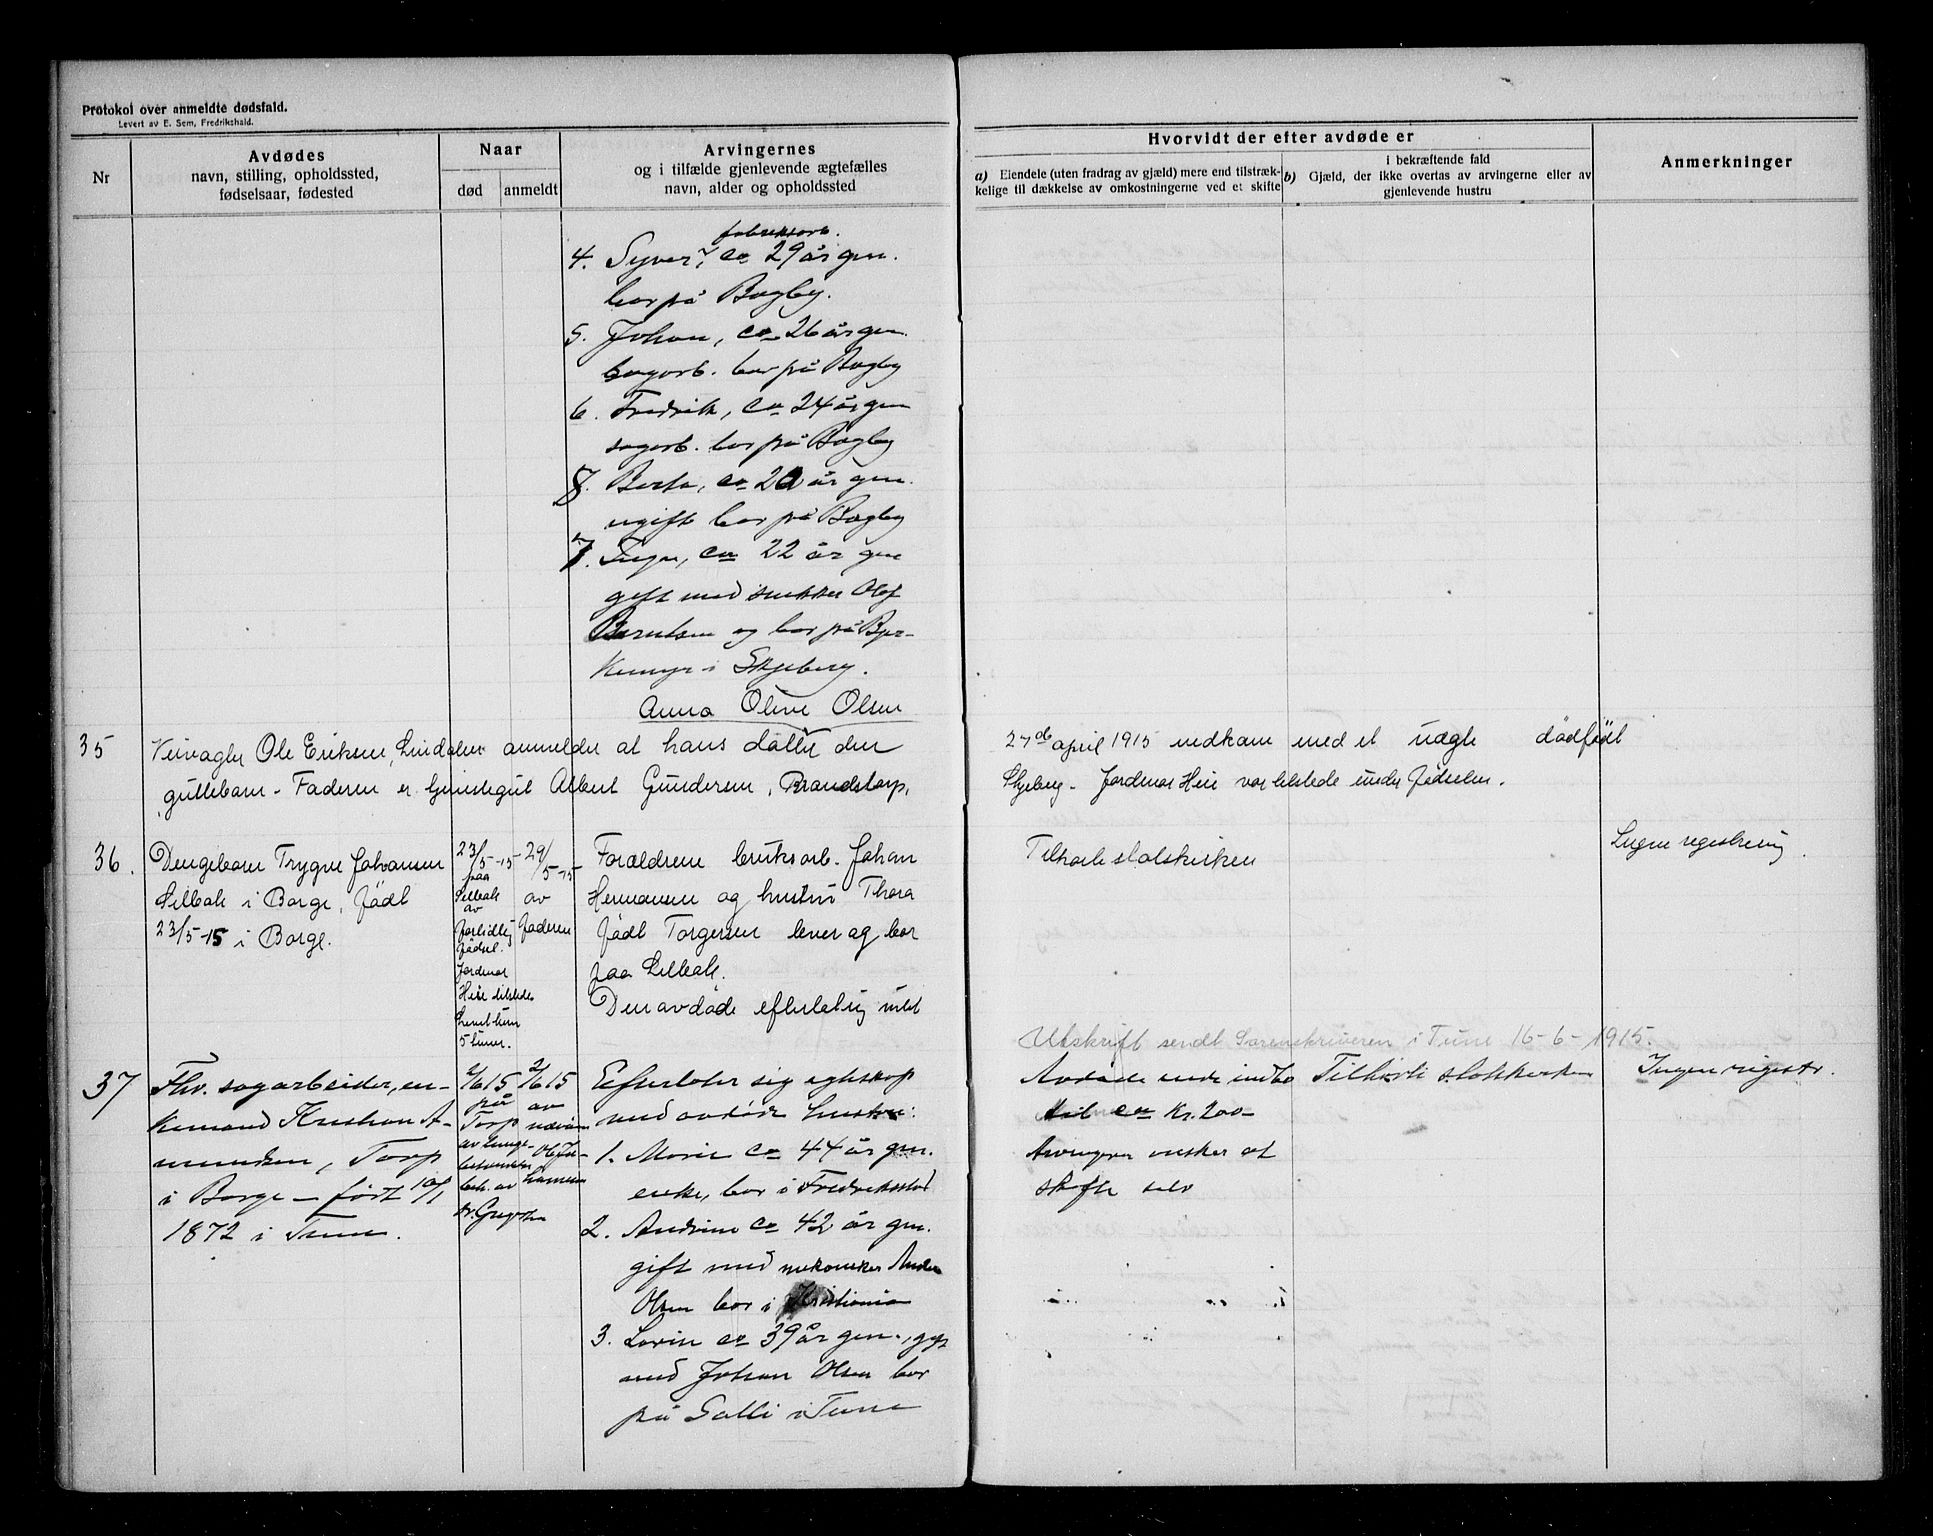 Protokol over anmeldte dødsfald.
Levert av E. Sem, Fredrikshald.
Nr
Avdødes
navn, stilling, opholdssted,
fødselsaar, fødested
Naar
død
anmeldt
Arvingernes
og i tilfælde gjenlevende ægtefælles
navn, alder og opholdssted
Hvorvidt der efter avdøde er
a) Eiendele (uten fradrag av gjæld) mere end tilstræk-
kelige til dækkelse av omkostningerne ved et skifte
i bekræftende fald
b) Gjæld, der ikke overtas av arvingerne eller av
gjenlevende hustru
Anmerkninger
fabriksarb.
4. Syver, ca 29 år gm.
bor på Bagby.
5. Johan, ca 26 år gm.
sagarb. bor på Bagby
6. Fredrik, ca 24 år gm
sagarb. bor på Bagby
8. Berta, ca 20 år gm.
ugift bor på Bagby
7. ca 22 år gm
gift med snekker Olaf
Berntsen og bor på Bjør-
kemyr i Skjeberg.
Anna Oline Olsen
35 Ole Eriksen, Lindalen anmelder at hans datter den 27de april 1915 nedkom med et uægte dødfødt
guttebarn - Faderen er Albert Gundersen, Brandstorp, Skjeberg. Jordmor Heie var tilstede under fødselen.
36. Drengebarn Trygve Johansen
Selbak i Borge, født
23/5-15 i Borge.
23/5-15
paa
Selbak
av
fortidlig
fødsel.
Jordmor
Heie tilstede
Levet kun
5 timer.
29/5-15
av
faderen
Forældrene bruksarb. Johan
Hermansen og hustru Thora
født Torgersen lever og bor
paa Selbak.
Den avdøde efterlot sig intet
Tilhørte statskirken
Ingen registrering.
Utskrift sendt Sorenskriveren i Tune 16-6-1915.
37 Fhv. sagarbeider, en-
kemand Kristian A-
mundsen, Torp
i Borge - født 10/1
1872 i Tune.
2/6 15
på
Torp
av lunge-
betændelse
beh. av
dr.
2/6 15
av
Ole Jo-
hansen
Efterlater sig egteskap
med avdøde hustru:
1. Marie ca 44 år gm.
enke, bor i Fredriksstad
2. Andrine ca 42 år gm.
gift med mekaniker Anders
Olsen bor i Kristiania
3. Lovise ca 39 år gm., gift
med Johan Olsen bor
på Galli i Tune
Avdøde eiede indbo
til ca Kr. 200-
Arvingerne ønsker at
skifte selv
Tilhørte statskirken
Ingen registr.